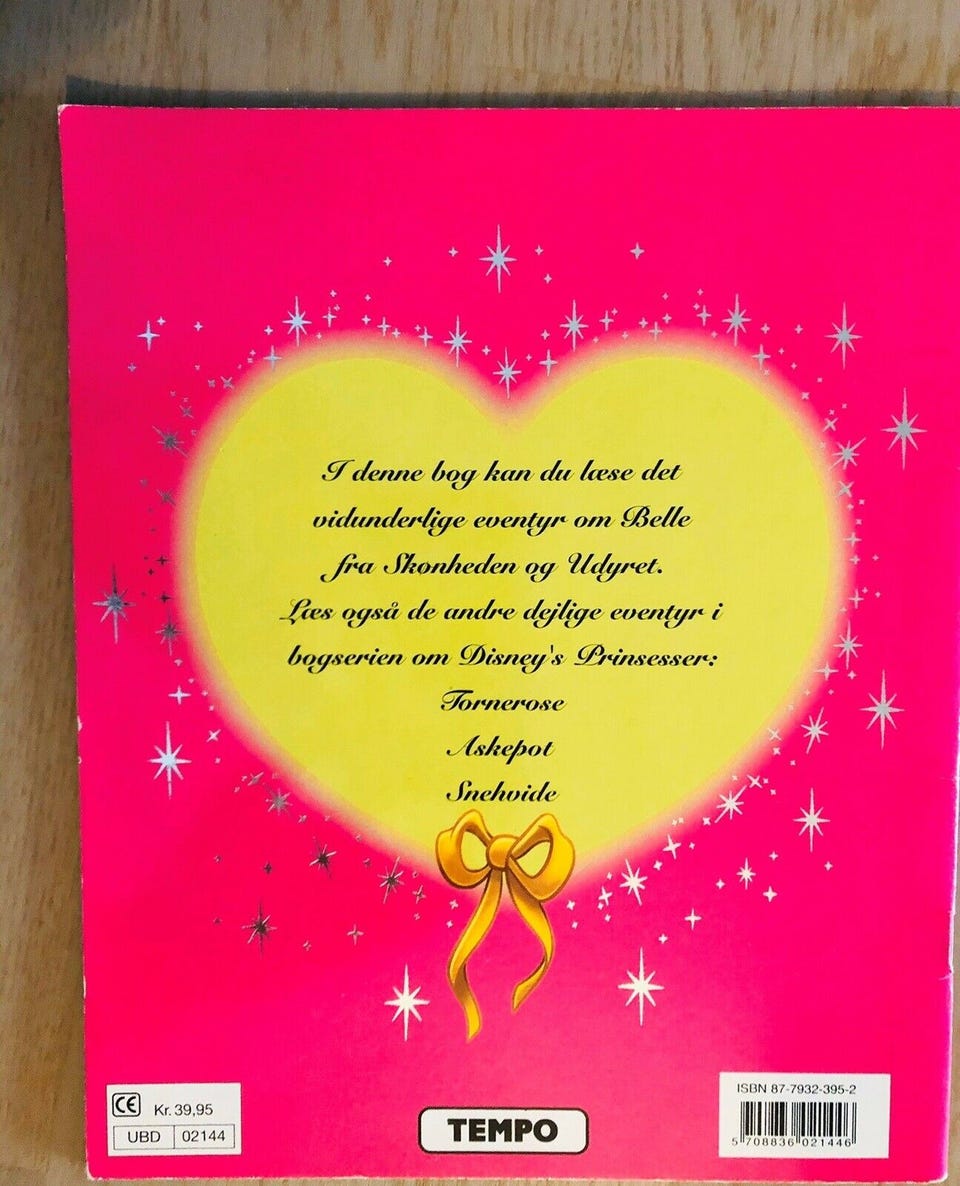 I denne bog kan du læse det
vidunderlige eventyr om Belle
fra Skønheden og Udyret.
Læs også de andre dejlige eventyr i
bogserien om Disney's Prinsesser:
Tornerose
Askepot
Snehvide
CE Kr. 39,95
UBD 02144
TEMPO
ISBN 87-7932-395-2
5 708836 021446